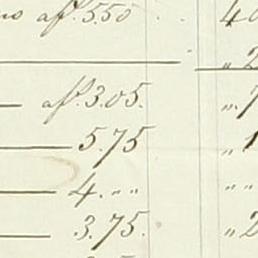 af. 5.50 40
" 2
af. 3.05. ". 7
5.75 " 1
4. " " " "
3.75. " 2